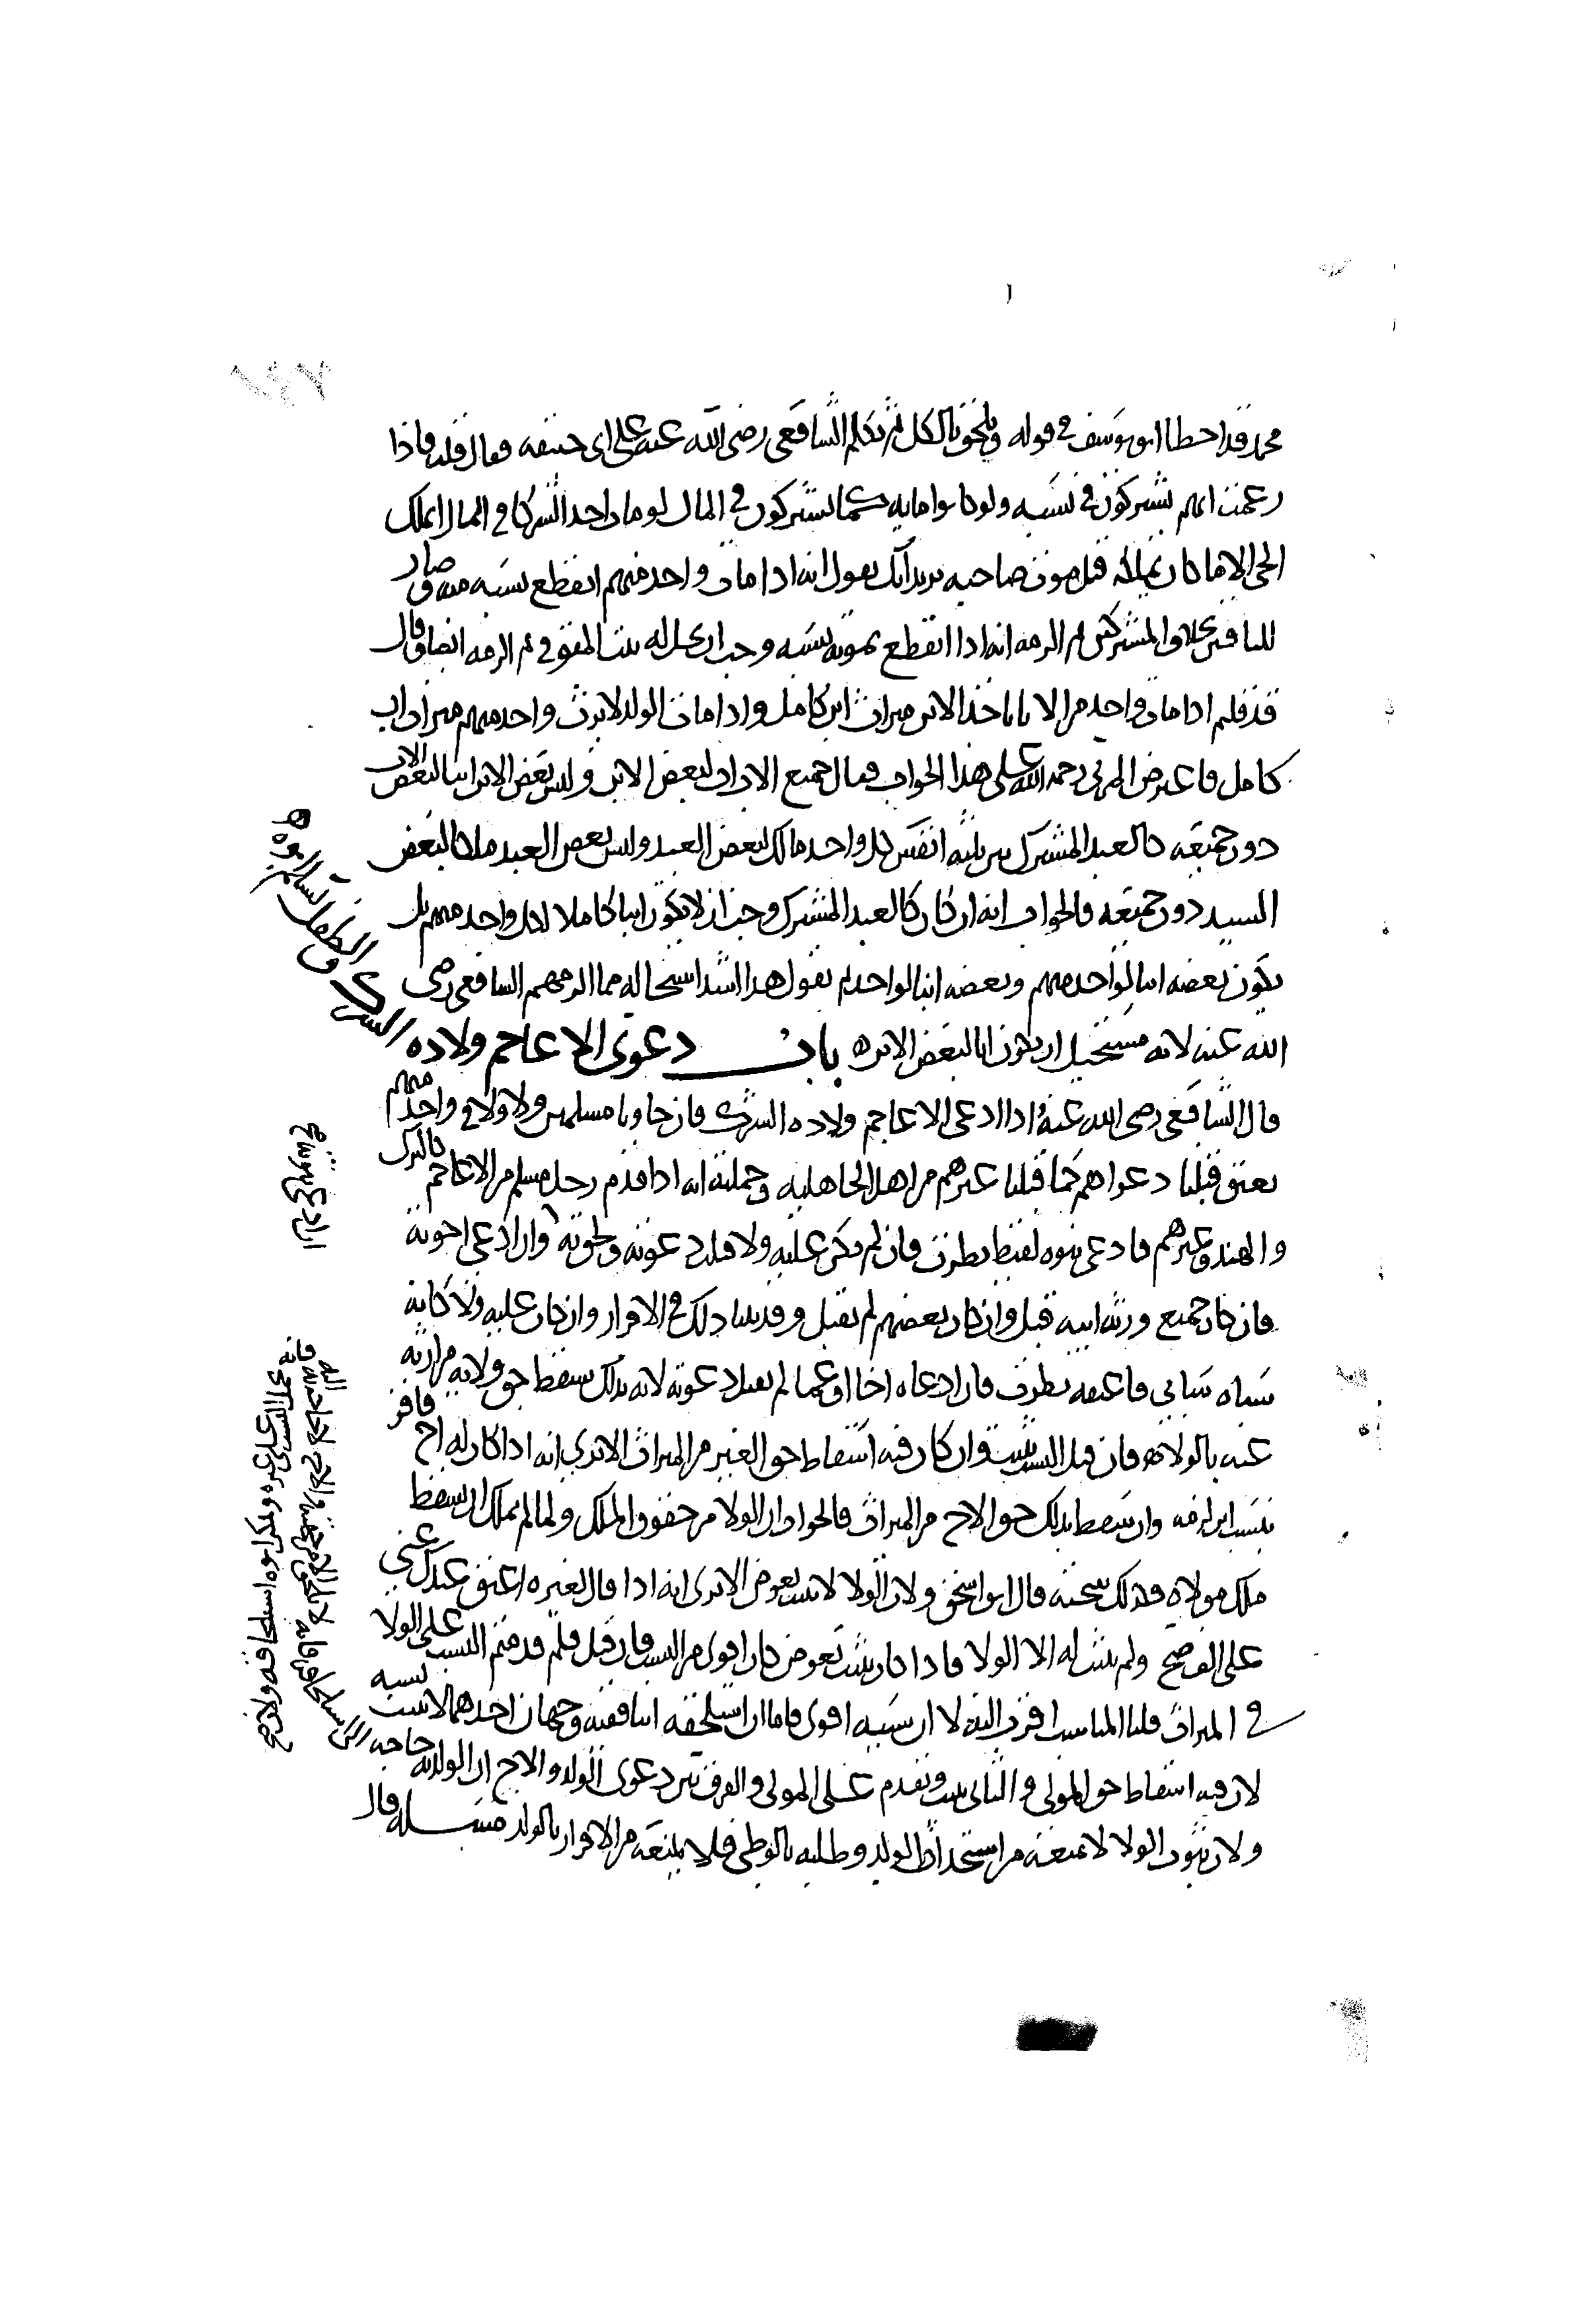 محمد قد اخطا ابو يوسف في قوله ويلحق بالكل ثم تكلم الشافعي رضي الله عنه على ابي حنيفه فقال قلت فاذا
زعمت انهم يشتركون في نسبه ولو كانوا مايه كما يشتركون في المال لو مات احد الشركا في المال ايملك
الحي الا ما كان يملكه قبل موت صاحبه يريد انك تقول انه اذا مات واحد منهم انقطع نسبه منه وصار
للباقين بخلاف المشتركين ثم الزمه انه اذا انقطع بموته نسبه وجب ان يحل له بنت المتوفي ثم الزمه ايضا وقال
قد قلتم اذا مات واحد من الابا ياخذ الابن ميراث ابن كامل واذا مات الولد لا يرث واحد منهم ميراث اب
كامل فاعترض المزني رحمه الله على هذا الجواب فقال جميع الاب اب لبعض الابن وليس بعض الابن ابنا لبعض الاب
دون جميعه كالعبد المشترك بين ثلثه انفس كل واحد مالك لبعض العبد وليس بعض العبد ملكا لبعض
السيد دون جميعه فالجواب انه ان كان كالعبد المشترك وجب ان لا يكون ابنا كاملا لكل واحد منهم بل
يكون بعضه ابنا لواحد منهم وبعضه ابنا لواحد ثم نقول هذا اشد استحاله مما الزمهم الشافعي رضي
الله عنه لانه مستحيل ان يكون ابا لبعض الابن ه باب دعوى الاعاجم ولاده الشرك والطفل
قال الشافعي رضي الله عنه اذا ادعى الاعاجم ولاده الشرك فان جاونا مسلمين ولا ولا في واحد منهم
بعتق قبلنا دعواهم كما قبلنا غيرهم من اهل الجاهليه وجملته انه اذا قدم رجل مسلم من الاعاجم كالترك
والهند وغيرهم فادعى بنوه لقيط نظرت فان لم يكن عليه ولا قبلت دعوته ولحق به وان ادعى اخوته
فان كان جميع ورثه ابيه قبل وان كان بعضهم لم تقبل وقد بينا ذلك في الاقرار وان كان عليه ولا كانه
سباه سابي فاعتقه نظرت فان ادعاه اخا او عما لم تقبل دعوته لانه بذلك يسقط حق ولايه من ارثه
عنه بالولا ه فان قيل النسب يثبت وان كان فيه اسقاط حق الغير من الميراث الا ترى انه اذا كان له اخ فاقر
بنسب ابن لزمه وان سقط بذلك حق الاخ من الميراث فالجواب ان الولا من حقوق الملك ولما لم يملك ان يسقط
ملك مولاه فكذلك حقه قال ابو اسحق ولان الولا لا يثبت بعوض الا ترى انه اذا قال لغيره اعتق عبدك عني
على الف صح ولم يثبت له الا الولا فاذا كان يثبت بعوض كان اقوى من النسب فان قيل فلم قدمتم النسب على الولا
في الميراث قلنا المناسب اقرب اليه لا ان سببه اقوى فاما ان استلحقه ابنا ففيه وجهان احدهما لا يثبت نسبه
لان فيه اسقاط حق المولى والثاني يثبت ويقدم على المولى والفرق بين دعوى الولد والاخ ان الولد به حاجه الى استلحاقه
ولان ثبوت الولا لا يمنعه من استحداث الولد وطلبه بالوطي فلا يمنعه من الاقرار بالولد مسله قال